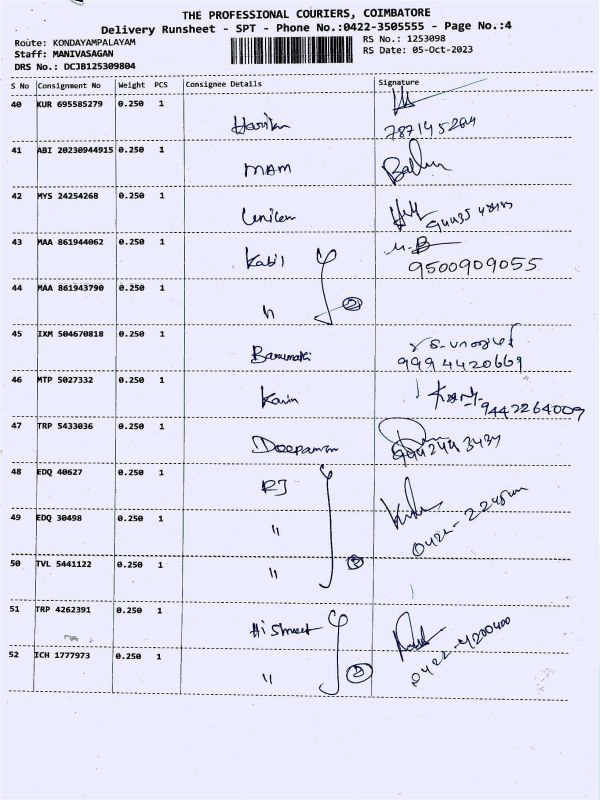 THE PROFESSIONAL COURIERS, COIMBATORE
Delivery Runsheet - SPT - Phone No.:0422-3505555 - Page No.:4
Route: KONDAYAMPALAYAM
RS No.: 1253098
Staff: MANIVASAGAN
RS Date: 05-Oct-2023
DRS No.: DCJB125309804
S No Consignment No Weight PCS Consignee Details Signature
40 KUR 695585279 0.250 1
41 ABI 20230944915 0.250 1
MAM
42 MYS 24254268 0.250 1
43 MAA 861944062 0.250 1
Kabil
9500909055
44 MAA 861943790 0.250 1
"
2
45 IXM 504670818 0.250 1
Banumathi
9994420669
46 MTP 5027332 0.250 1
9442264009
47 TRP 5433036 0.250 1
48 EDQ 40627 0.250 1
RJ
49 EDQ 30498 0.250 1
"
50 TVL 5441122 0.250 1
"
3
51 TRP 4262391 0.250 1
0422-4200400
52 ICH 1777973 0.250 1
"
2